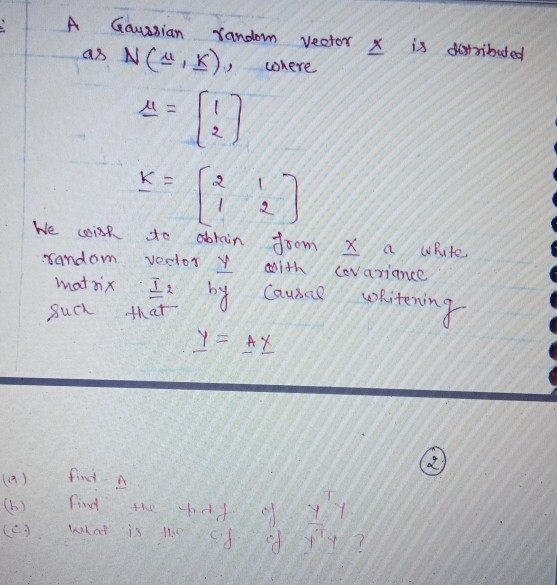 A Gaussian random vector X is distributed
as N(μ, K), where
μ = [1
2]
K = [2 1
1 2]
We wish to obtain from X a white
random vector Y with covariance
matrix I2 by causal whitening
such that
Y = AX
2
(a) find A
(b) Find the pdf of YᵀY
(c) What is the cf of YᵀY ?